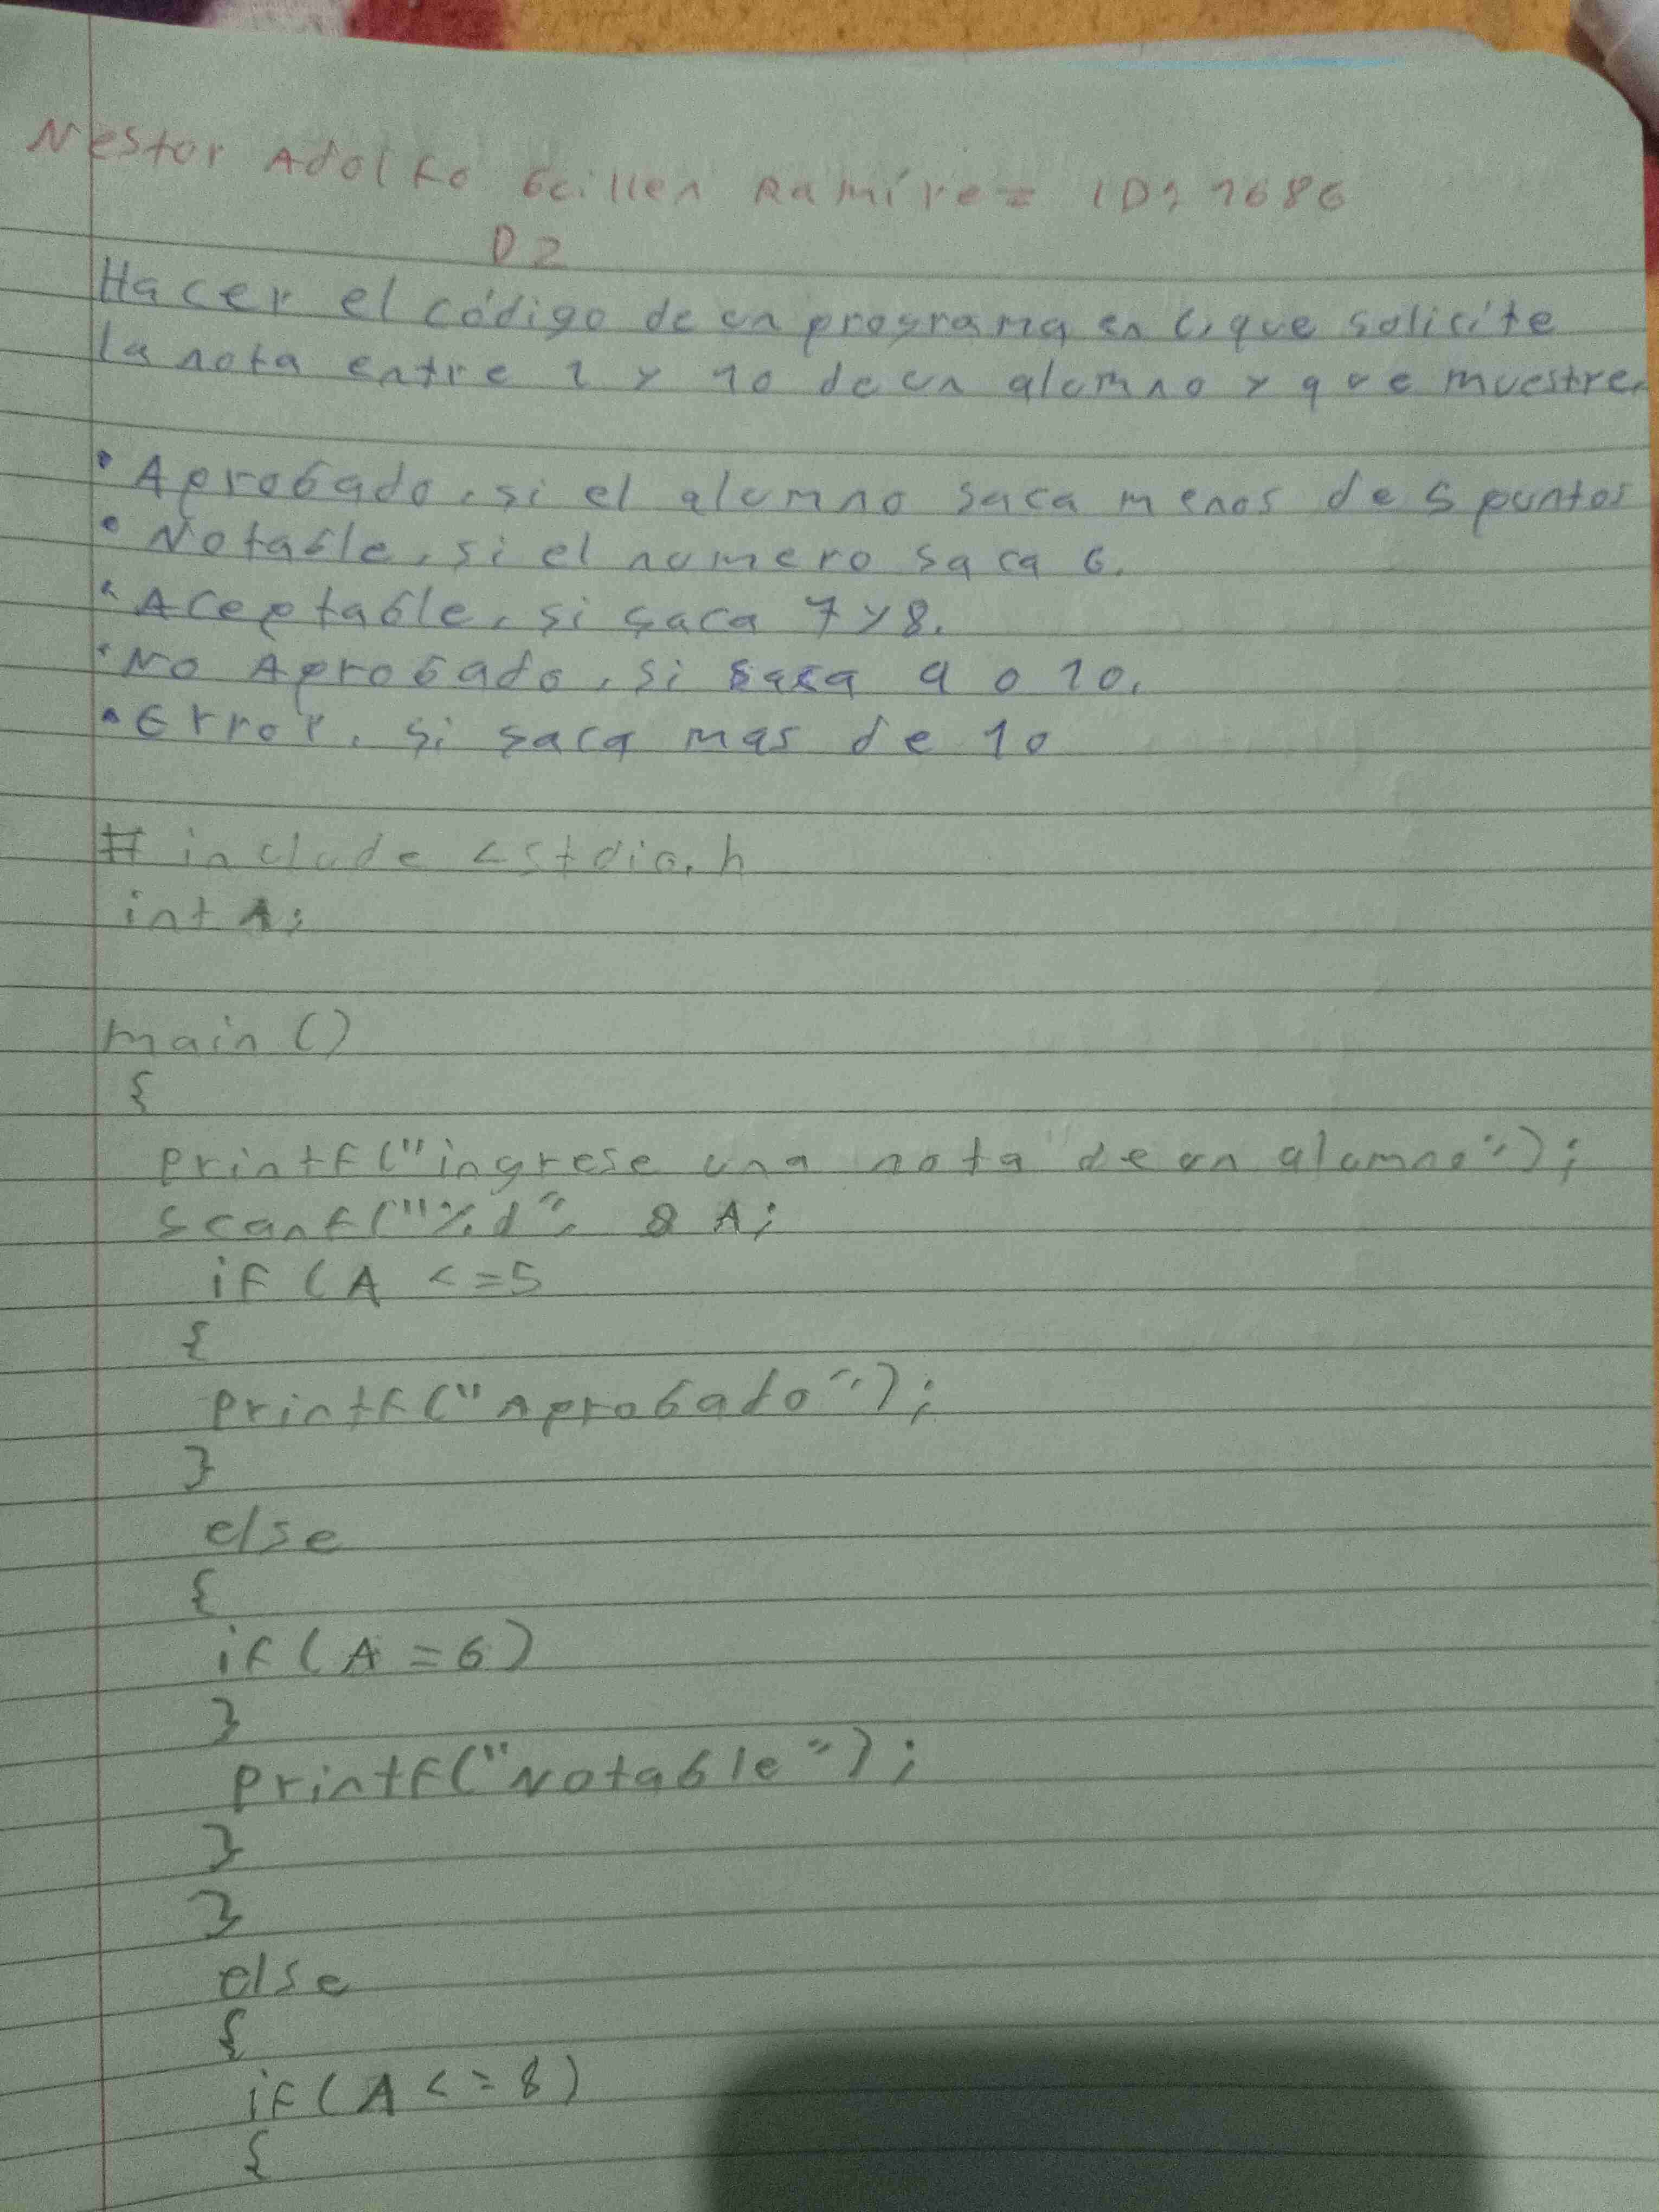 Nestor Adolfo Gcillen Ramírez ID: 1686
D2
Hacer el código de un programa en C, que solicite
la nota entre 1 y 10 de un alumno y que muestre.
• Aprobado, si el alumno saca menos de 5 puntos
• Notable, si el numero saca 6.
• Aceptable, si saca 7 y 8.
• No Aprobado, si saca 9 o 10.
• Error, si saca mas de 10
# include <stdio.h
int A;
main ()
{
printf("ingrese una nota de un alumno");
scanf("%d", & A;
if (A <=5
{
printf("Aprobado");
}
else
{
if (A = 6)
}
printf("Notable");
}
}
else
{
if (A <= 8)
{